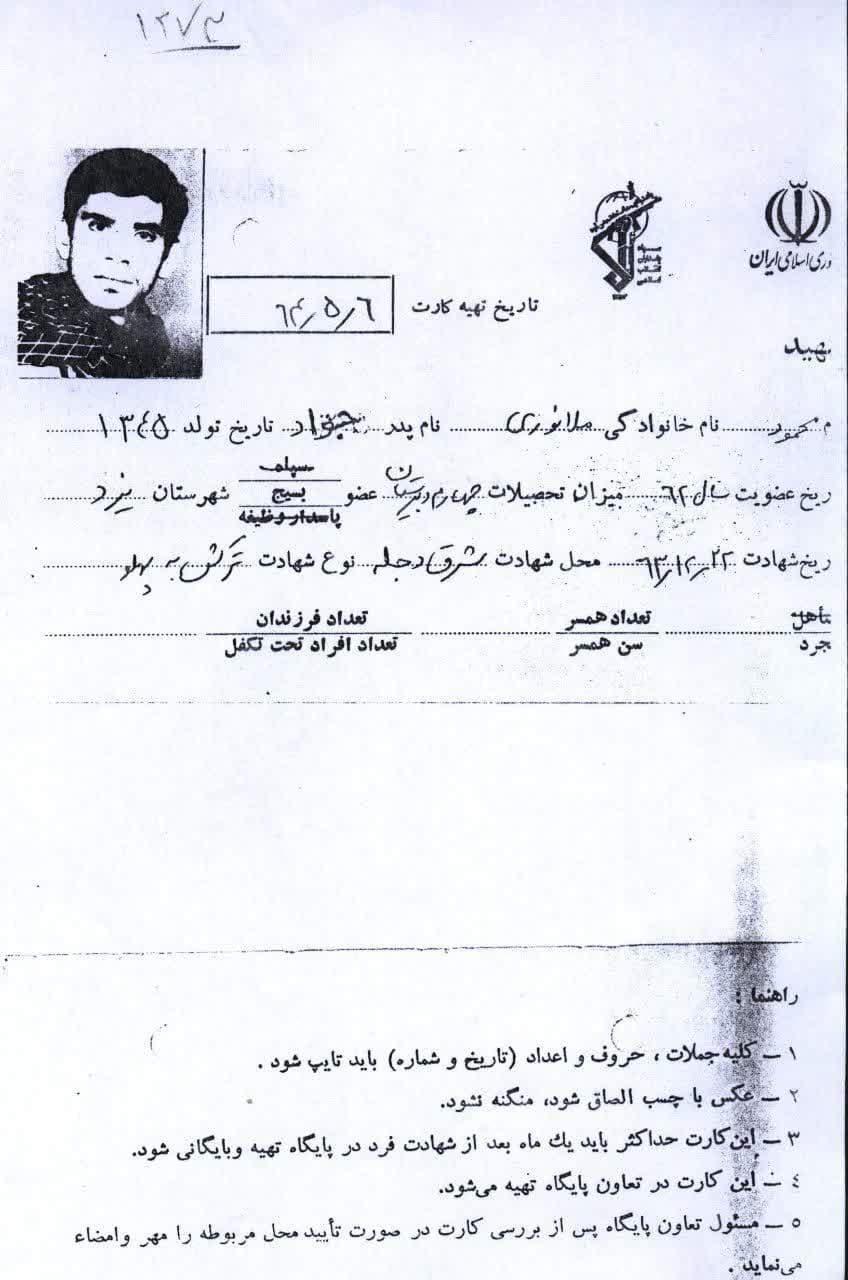 ۱۲۷۳
دری اسلامی ایران
سپاه پاسداران انقلاب اسلامی
تاریخ تهیه کارت ۶۴ر۵ر۶
هید
م محمود نام خانوادگی ملانوری نام پدر تاریخ تولد ۱۳۴۵
ریخ عضویت سال ۶۲ میزان تحصیلات چهارم دبیرستان عضو سپاه بسیج پاسدار وظیفه شهرستان یزد
ریخ شهادت ۶۳ر۱۲ر۲۲ محل شهادت شرق دجله نوع شهادت ترکش به پهلو
متأهل تعداد همسر تعداد فرزندان
جرد سن همسر تعداد افراد تحت تکفل
راهنما :
۱ ـ کلیه جملات ، حروف و اعداد (تاریخ و شماره) باید تایپ شود .
۲ ـ عکس با چسب الصاق شود، منگنه نشود.
۳ ـ این کارت حداکثر باید یك ماه بعد از شهادت فرد در پایگاه تهیه وبایگانی شود.
٤ ـ این کارت در تعاون پایگاه تهیه می‌شود.
۵ ـ مسئول تعاون پایگاه پس از بررسی کارت در صورت تأیید محل مربوطه را مهر وامضاء
می‌نماید .